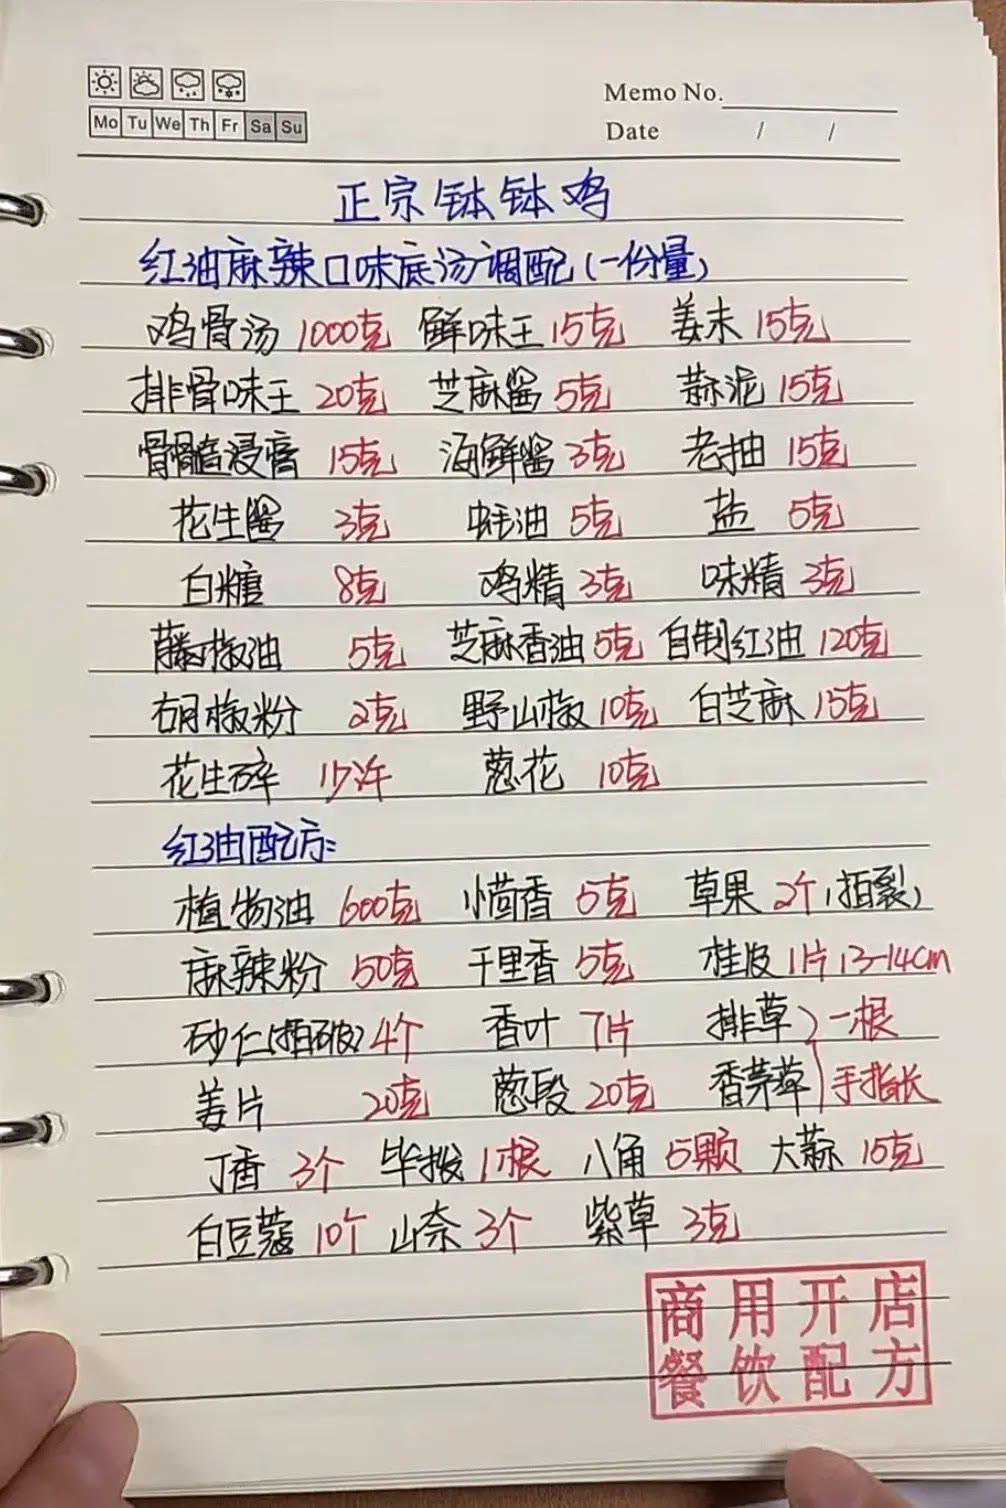 Memo No.
Mo Tu We Th Fr Sa Su
Date / /
正宗钵钵鸡
红油麻辣口味底汤调配(一份量)
鸡骨汤 1000克 鲜味王 15克 姜末 15克
排骨味王 20克 芝麻酱 5克 蒜泥 15克
骨髓浸膏 15克 海鲜酱 3克 老抽 15克
花生酱 3克 蚝油 5克 盐 5克
白糖 8克 鸡精 3克 味精 3克
藤椒油 5克 芝麻香油 5克 自制红油 120克
胡椒粉 2克 野山椒 10克 白芝麻 15克
花生碎 少许 葱花 10克
红油配方:
植物油 600克 小茴香 5克 草果 2个(拍裂)
麻辣粉 50克 千里香 5克 桂皮 1片 13-14cm
砂仁(拍破) 4个 香叶 7片 排草 一根
姜片 20克 葱段 20克 香茅草 手指长
丁香 3个 毕拨 1根 八角 5颗 大蒜 15克
白豆蔻 10个 山奈 3个 紫草 3克
商用开店
餐饮配方